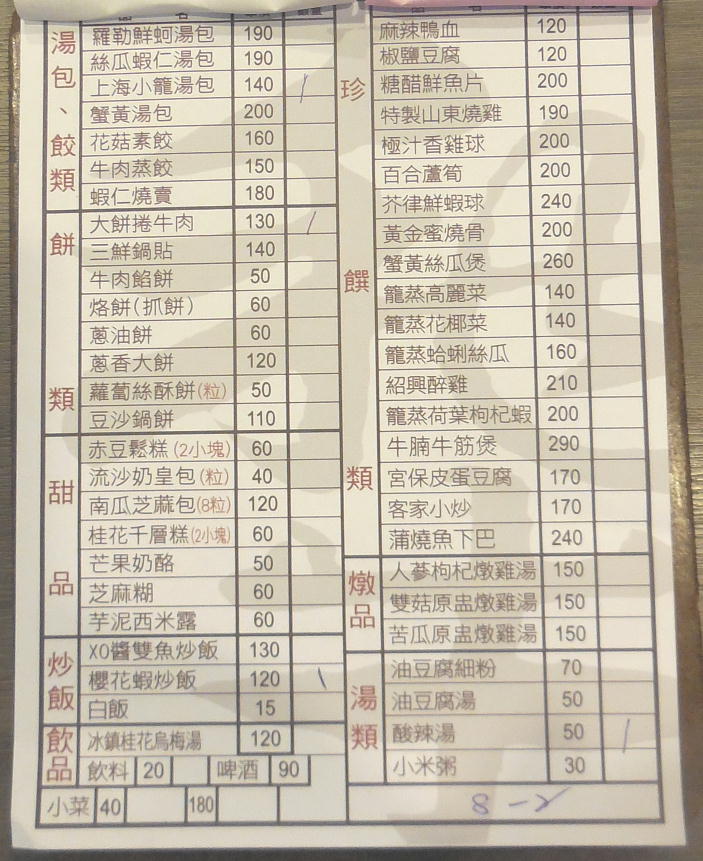 湯包、餃類
羅勒鮮蚵湯包 190
絲瓜蝦仁湯包 190
上海小籠湯包 140 /
蟹黃湯包 200
花菇素餃 160
牛肉蒸餃 150
蝦仁燒賣 180
餅類
大餅捲牛肉 130 /
三鮮鍋貼 140
牛肉餡餅 50
烙餅(抓餅) 60
蔥油餅 60
蔥香大餅 120
蘿蔔絲酥餅(粒) 50
豆沙鍋餅 110
甜品
赤豆鬆糕(2小塊) 60
流沙奶皇包(粒) 40
南瓜芝麻包(8粒) 120
桂花千層糕(2小塊) 60
芒果奶酪 50
芝麻糊 60
芋泥西米露 60
炒飯
XO醬雙魚炒飯 130
櫻花蝦炒飯 120 \
白飯 15
飲品
冰鎮桂花烏梅湯 120
飲料 20 啤酒 90
小菜 40 180
珍饌類
麻辣鴨血 120
椒鹽豆腐 120
糖醋鮮魚片 200
特製山東燒雞 190
極汁香雞球 200
百合蘆筍 200
芥律鮮蝦球 240
黃金蜜燒骨 200
蟹黃絲瓜煲 260
籠蒸高麗菜 140
籠蒸花椰菜 140
籠蒸蛤蜊絲瓜 160
紹興醉雞 210
籠蒸荷葉枸杞蝦 200
牛腩牛筋煲 290
宮保皮蛋豆腐 170
客家小炒 170
蒲燒魚下巴 240
燉品
人蔘枸杞燉雞湯 150
雙菇原盅燉雞湯 150
苦瓜原盅燉雞湯 150
湯類
油豆腐細粉 70
油豆腐湯 50
酸辣湯 50 /
小米粥 30